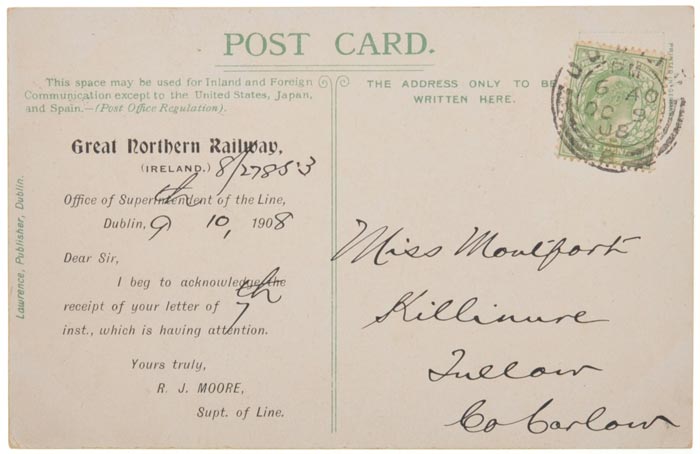 POST CARD.
This space may be used for Inland and Foreign
Communication except to the United States, Japan,
and Spain.—(Post Office Regulation).
THE ADDRESS ONLY TO BE
WRITTEN HERE.
Great Northern Railway,
(IRELAND.) 8/2785.3
Office of Superintendent of the Line,
Dublin, 9th 10, 1908
Dear Sir,
I beg to acknowledge the
receipt of your letter of 7th
inst., which is having attention.
Yours truly,
R. J. MOORE,
Supt. of Line.
Lawrence, Publisher, Dublin.
6 40
OC 9
08
Miss Moutfort
Killinure
Tullow
Co Carlow